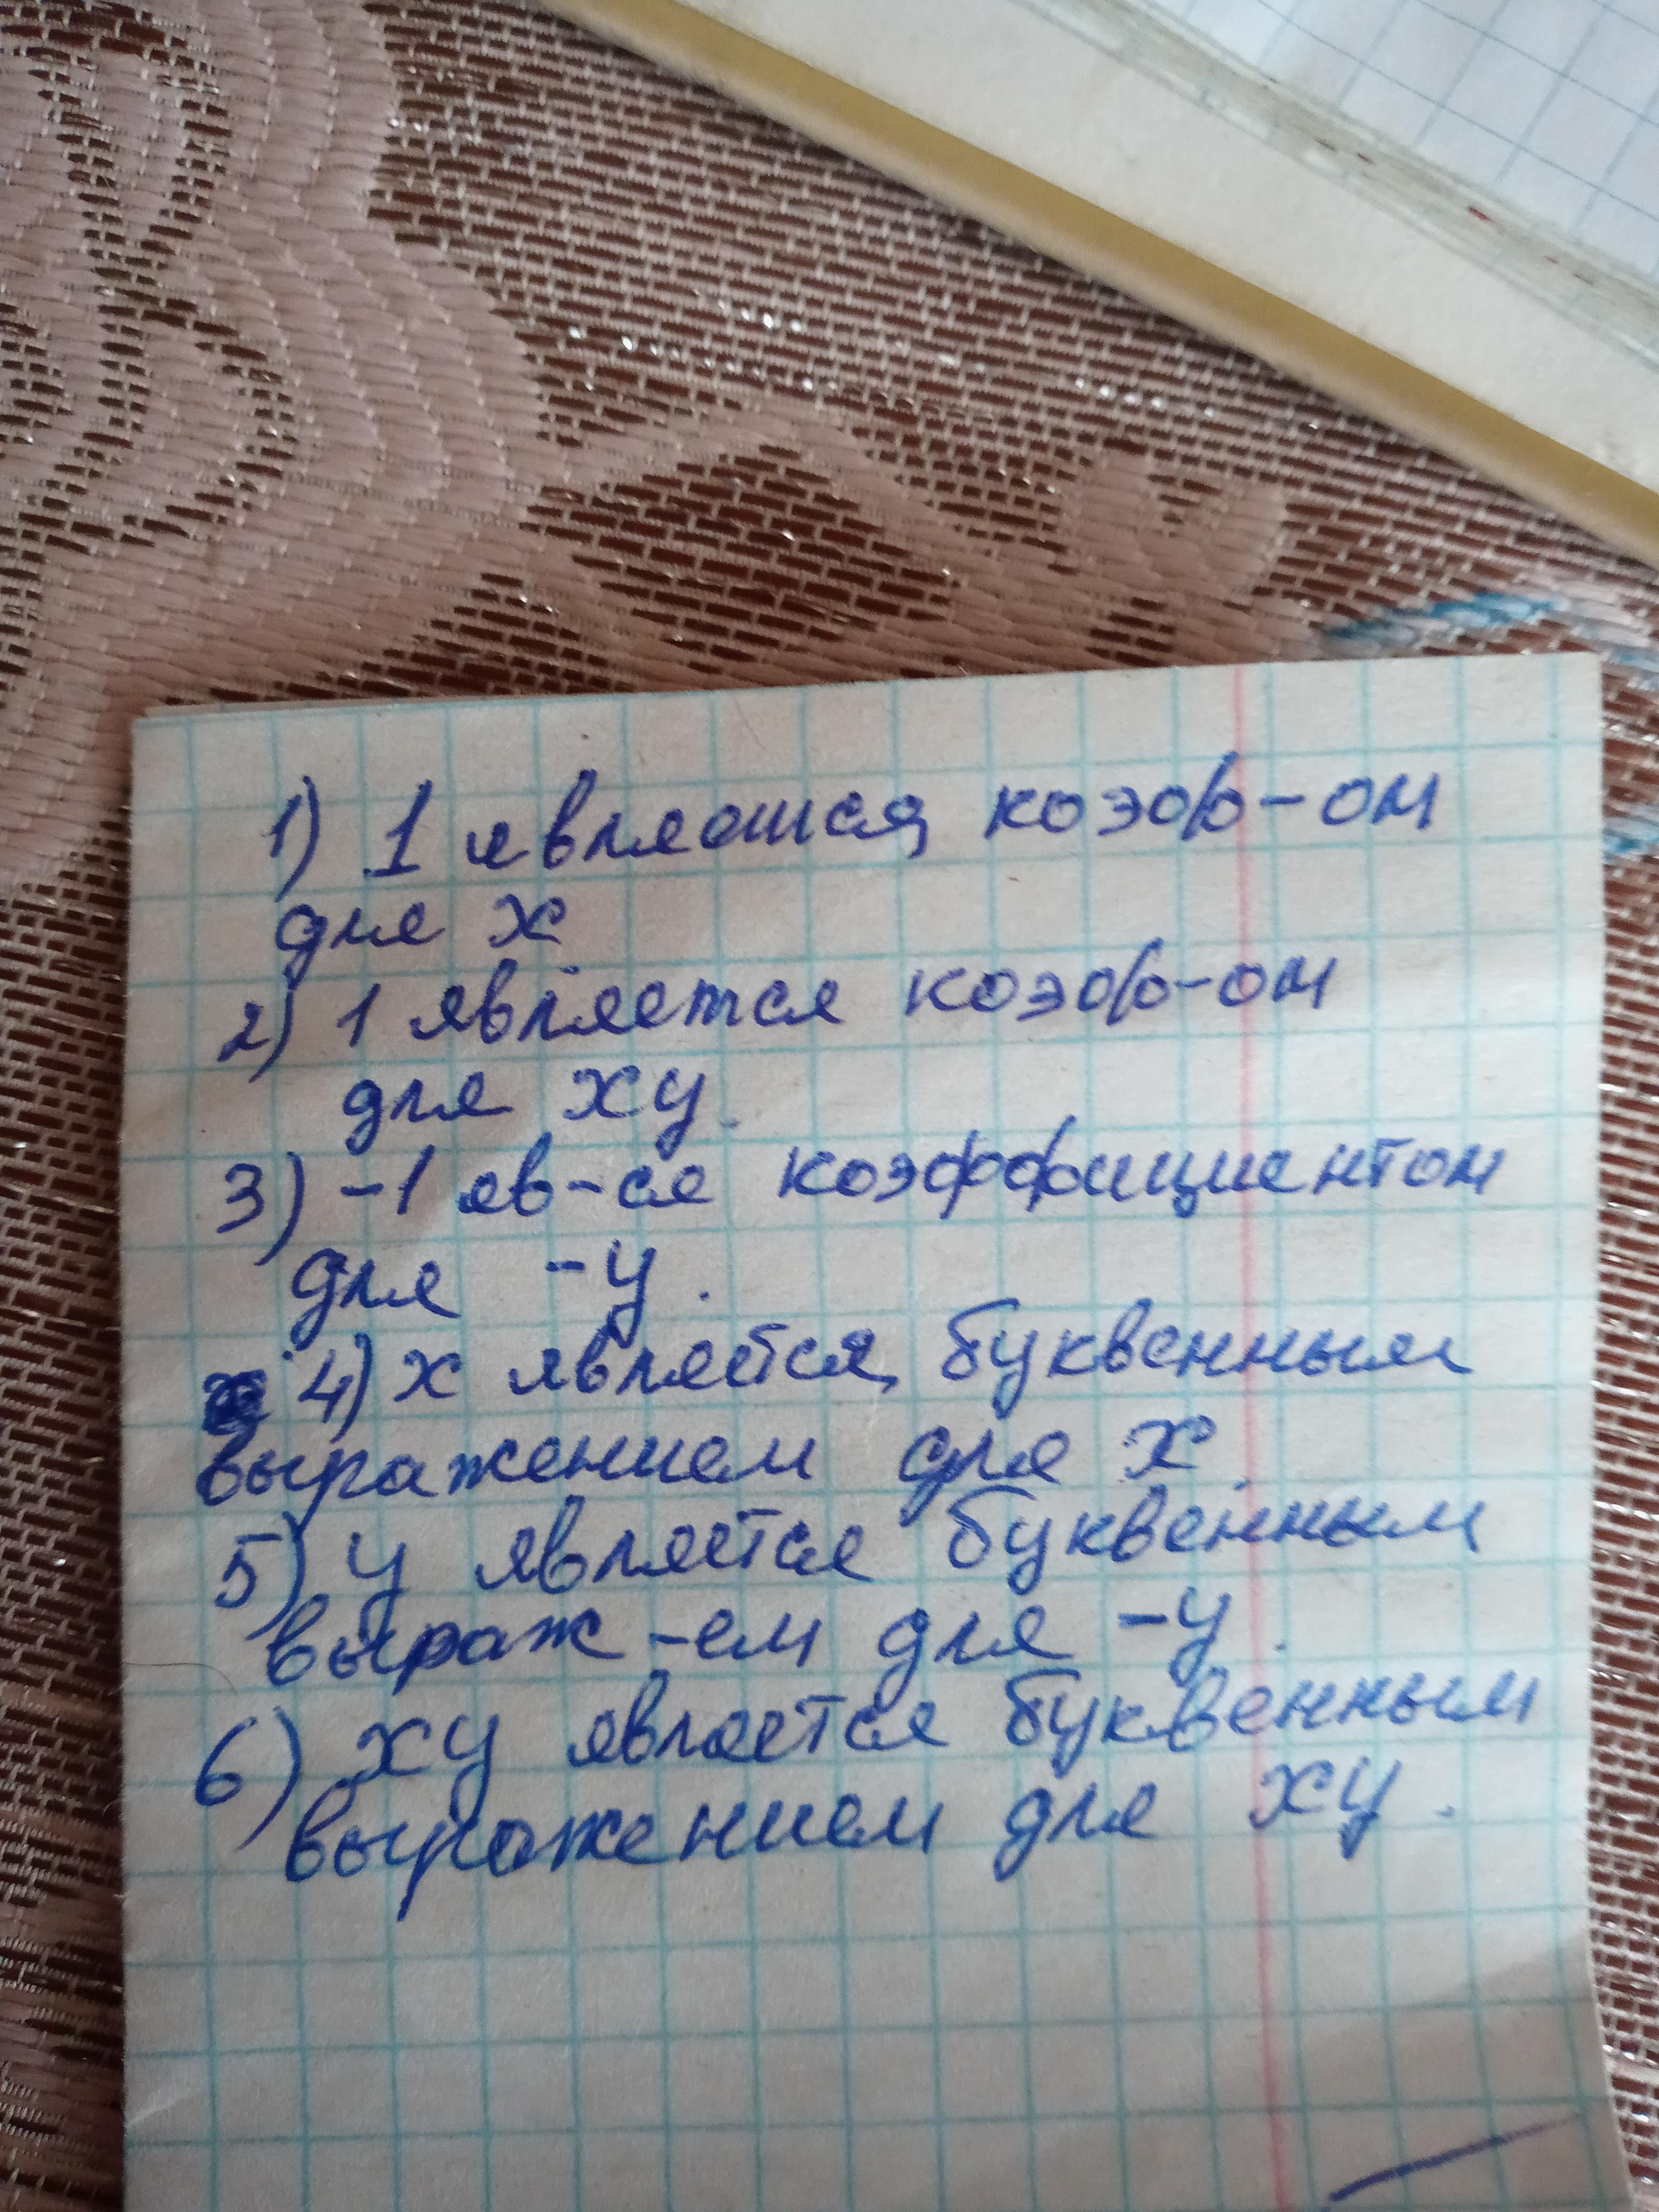 1) 1 является коэф-ом
для х
2) 1 является коэф-ом
для ху.
3) -1 яв-ся коэффициентом
для -у.
4) х является буквенным
выражением для х.
5) у является буквенным
выраж-ем для -у.
6) ху является буквенным
выражением для ху.